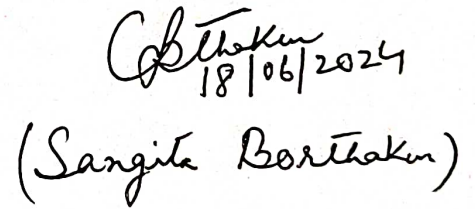 SBThakur
18/06/2024
(Sangita Borthakur)